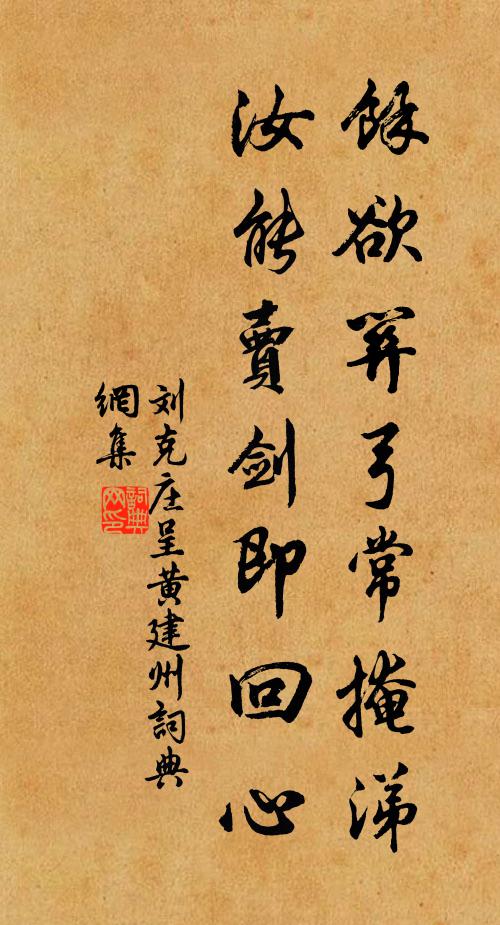 餘欲關弓常掩涕
汝能賣劍即回心
刘克庄呈黄建州詞典
網集
詞典
网印